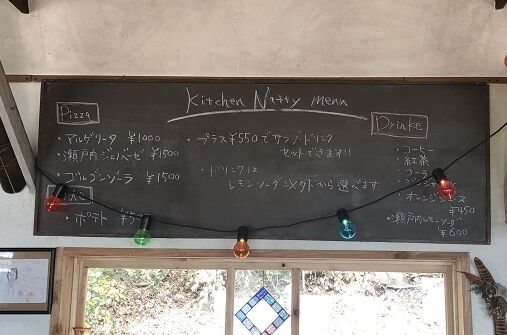 Kitchen Natty menu
Pizza
・マルゲリータ ¥1000
・瀬戸内ジェノベーゼ ¥1500
・ゴルゴンゾーラ ¥1500
・ポテト
・プラス¥550でサラダドリンク
セットできます!!
・ドリンクは
レモンソーダ以外から選べます。
Drinke
・コーヒー
・紅茶
・コーラ
・オレンジジュース
¥450
・瀬戸内レモンソーダ
¥600